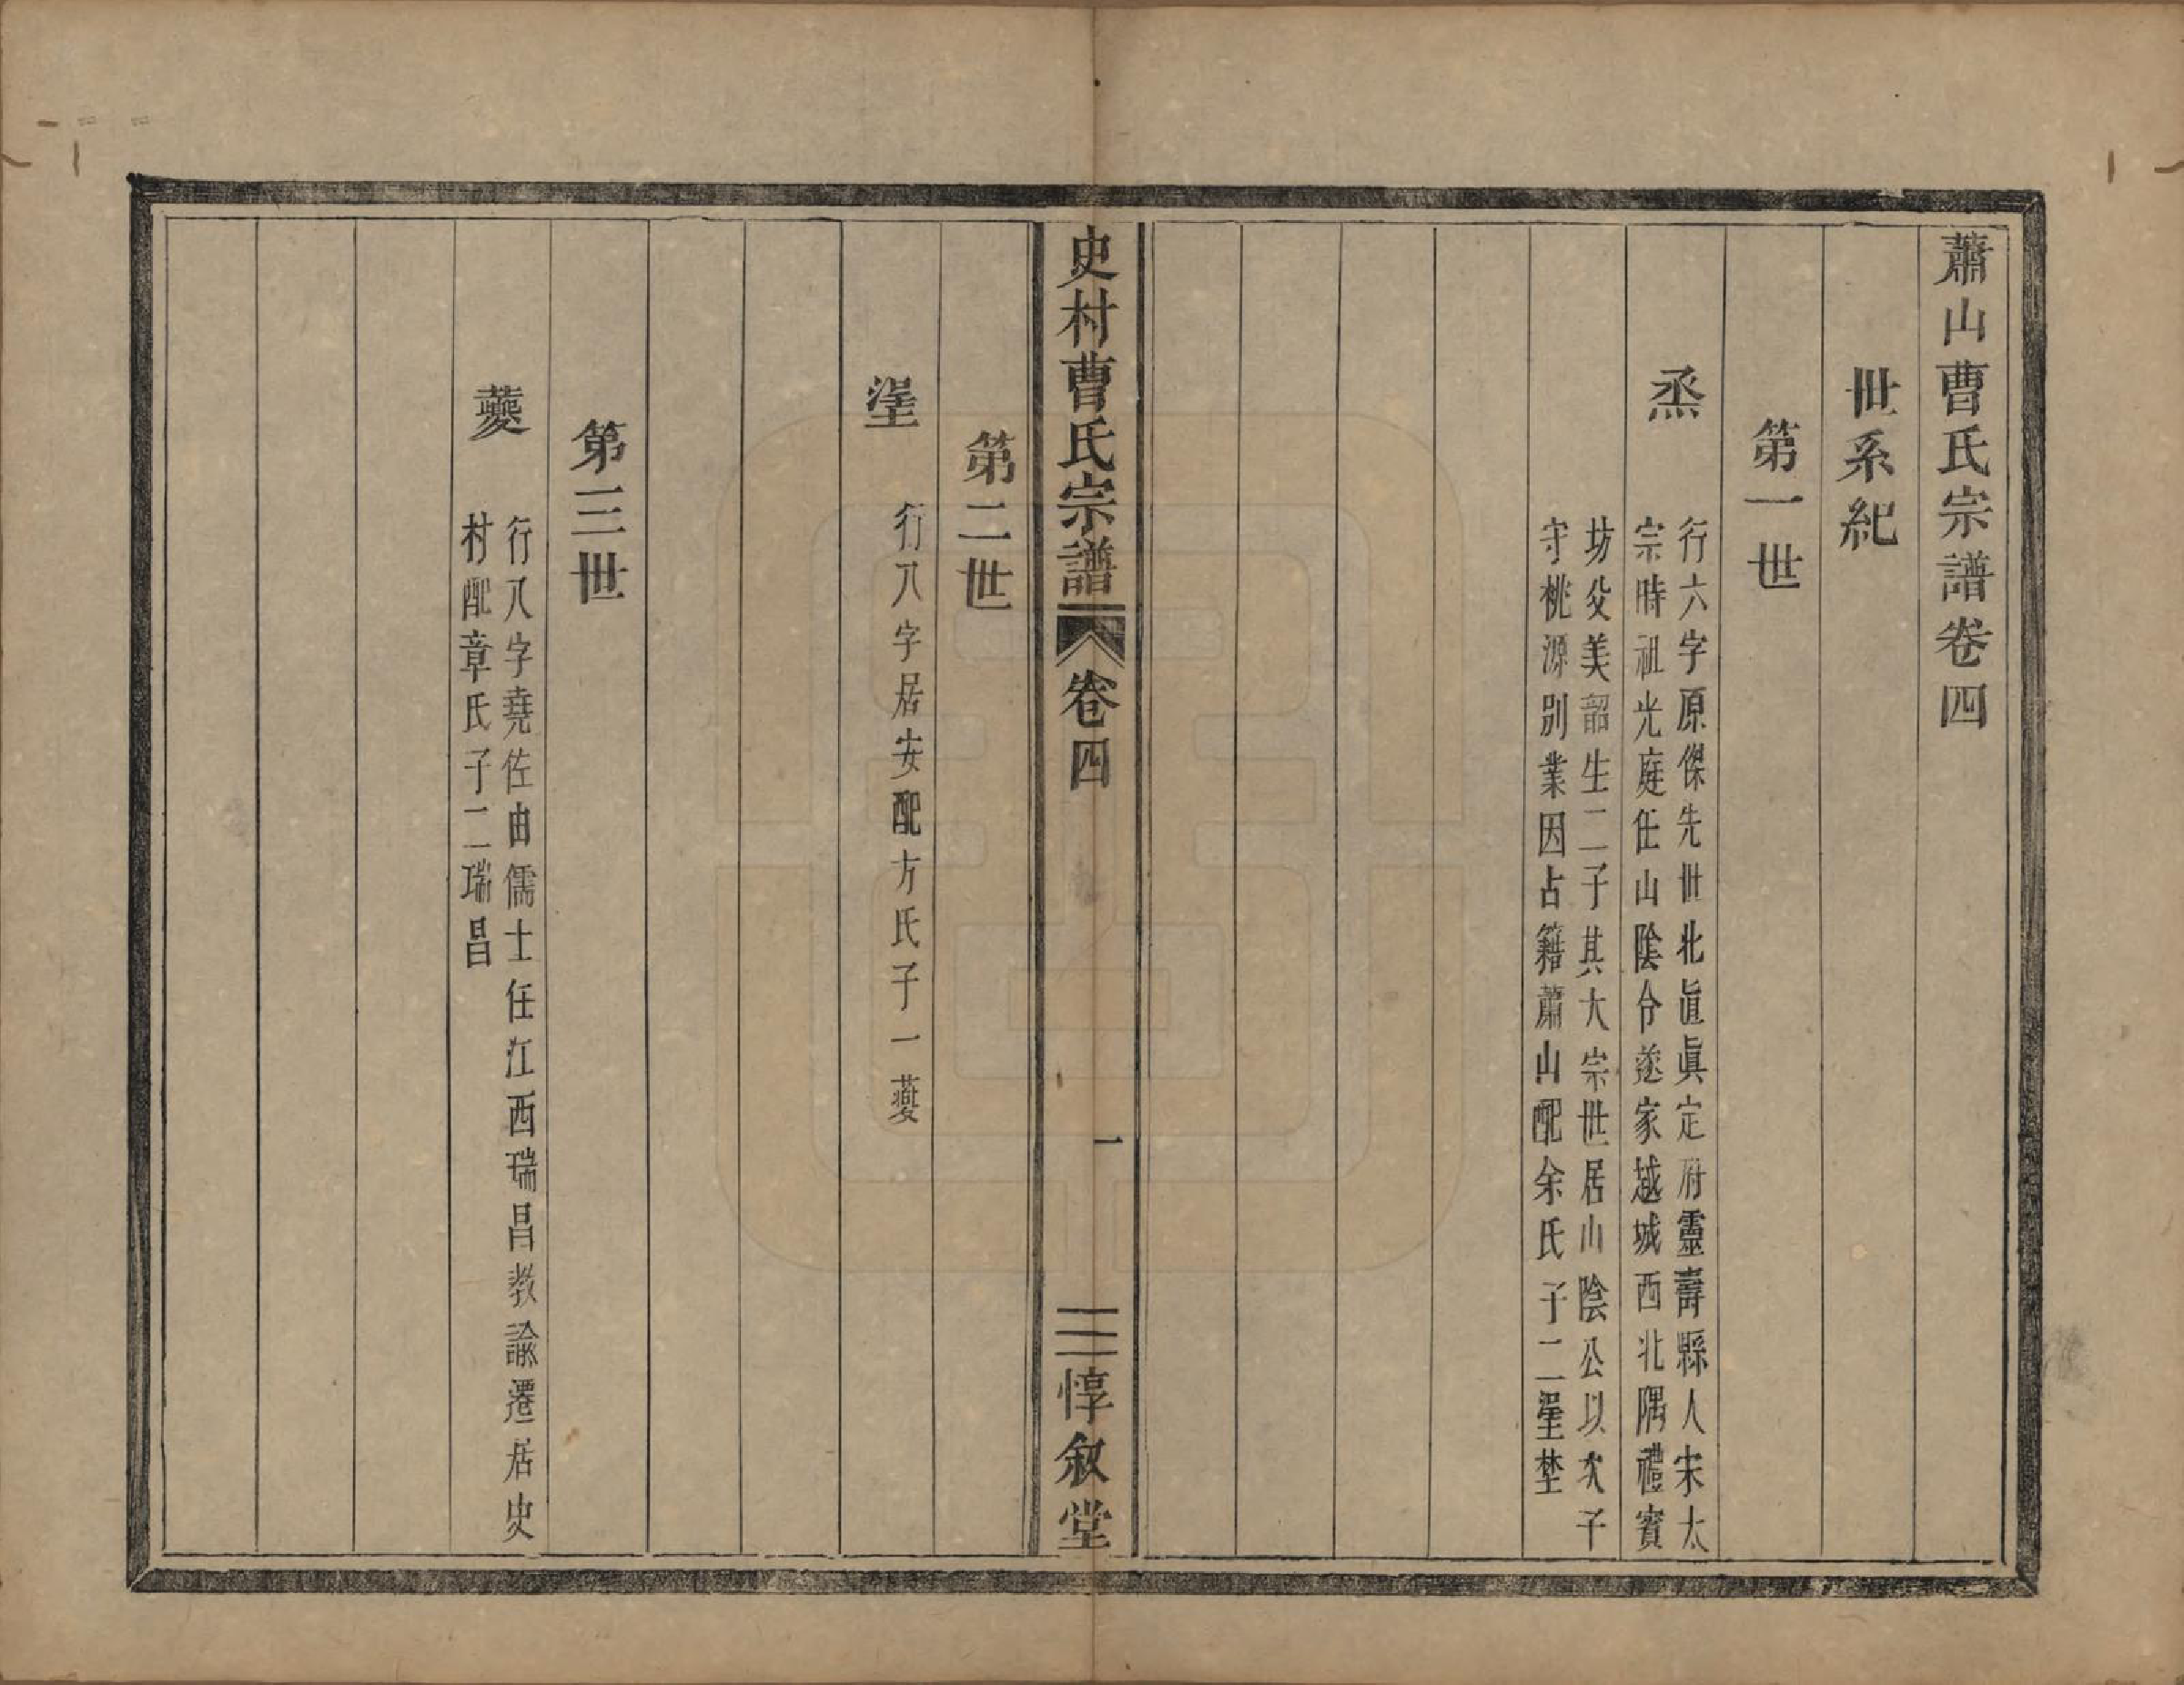 蕭山曹氏宗譜卷四
世系紀
第一世
烝
行六字原傑先世北直眞定府靈壽縣人宋太
宗時祖光庭任山陰令遂家越城西北隅禮賓
坊父美韶生二子其大宗世居山陰公以次子
守桃源別業因占籍蕭山配余氏子二壟埜
史村曹氏宗譜
卷四
一
惇敘堂
第二世
行八字居安配方氏子一夔
第三世
夔
行八字堯佐由儒士任江西瑞昌教諭遷居史
村配章氏子二瑞昌